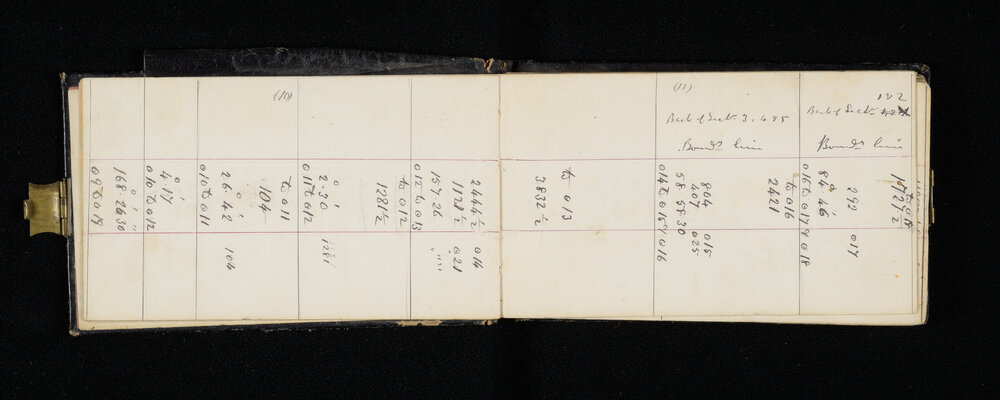 (10)
09 to 019
168° 26' 30"
010 to 012
4° 17'
010 to 011
26° 42'
104
104
to 011
011 to 012
2° 30'
1281
1281½
to 012
012 to 013
157° 26
1124½ 021
2444½ 014
(11)
3832½
to 013
Back of Sectn 3, 4 & 5
Boundy line
014 to 015 & 016
58 58 30
407 025
804 015
2421
to 016
122
Back of Sectn
Boundy line
016 to 017 & 018
84° 46'
292 017
1727½
to 018